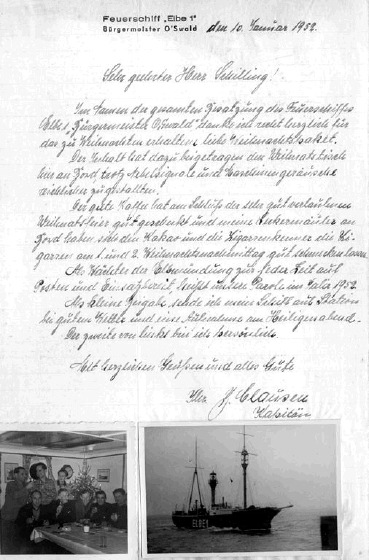 Feuerschiff „Elbe 1"
Bürgermeister O'Swald
den 10. Januar 1952.
Sehr geehrter Herr Schilling!
Im Namen der gesamten Besatzung des Feuerschiffes
Elbe 1 „Bürgermeister O'Swald" danke ich recht herzlich für
das zu Weihnachten erhaltene liebe Weihnachtspaket.
Der Inhalt hat dazu beigetragen den Weihnachtstisch
hier an Bord trotz Nebelsignale und Maschinengeräusche
reichlicher zu gestalten.
Der gute Kaffee hat am Schluss der sehr gut verlaufenen
Weihnachtsfeier gut geschmeckt und meine
an
Bord haben sich den Kakao und die Zigarrenkenner die Zi-
garren am 1. und 2. Weihnachtsnachmittag gut schmecken lassen.
Als Wächter der Elbmündung zur jeder Zeit auf
Posten und Einsatzbereit heißt unsere Parole im Jahre 1952.
Als kleine Zugabe sende ich mein Schiff auf Station
bei gutem Wetter und eine Aufnahme am Heiligenabend.
Der zweite von links bin ich persönlich.
Mit herzlichen Grüßen und alles Gute
Ihr J. Clausen
Kapitän
ELBE 1